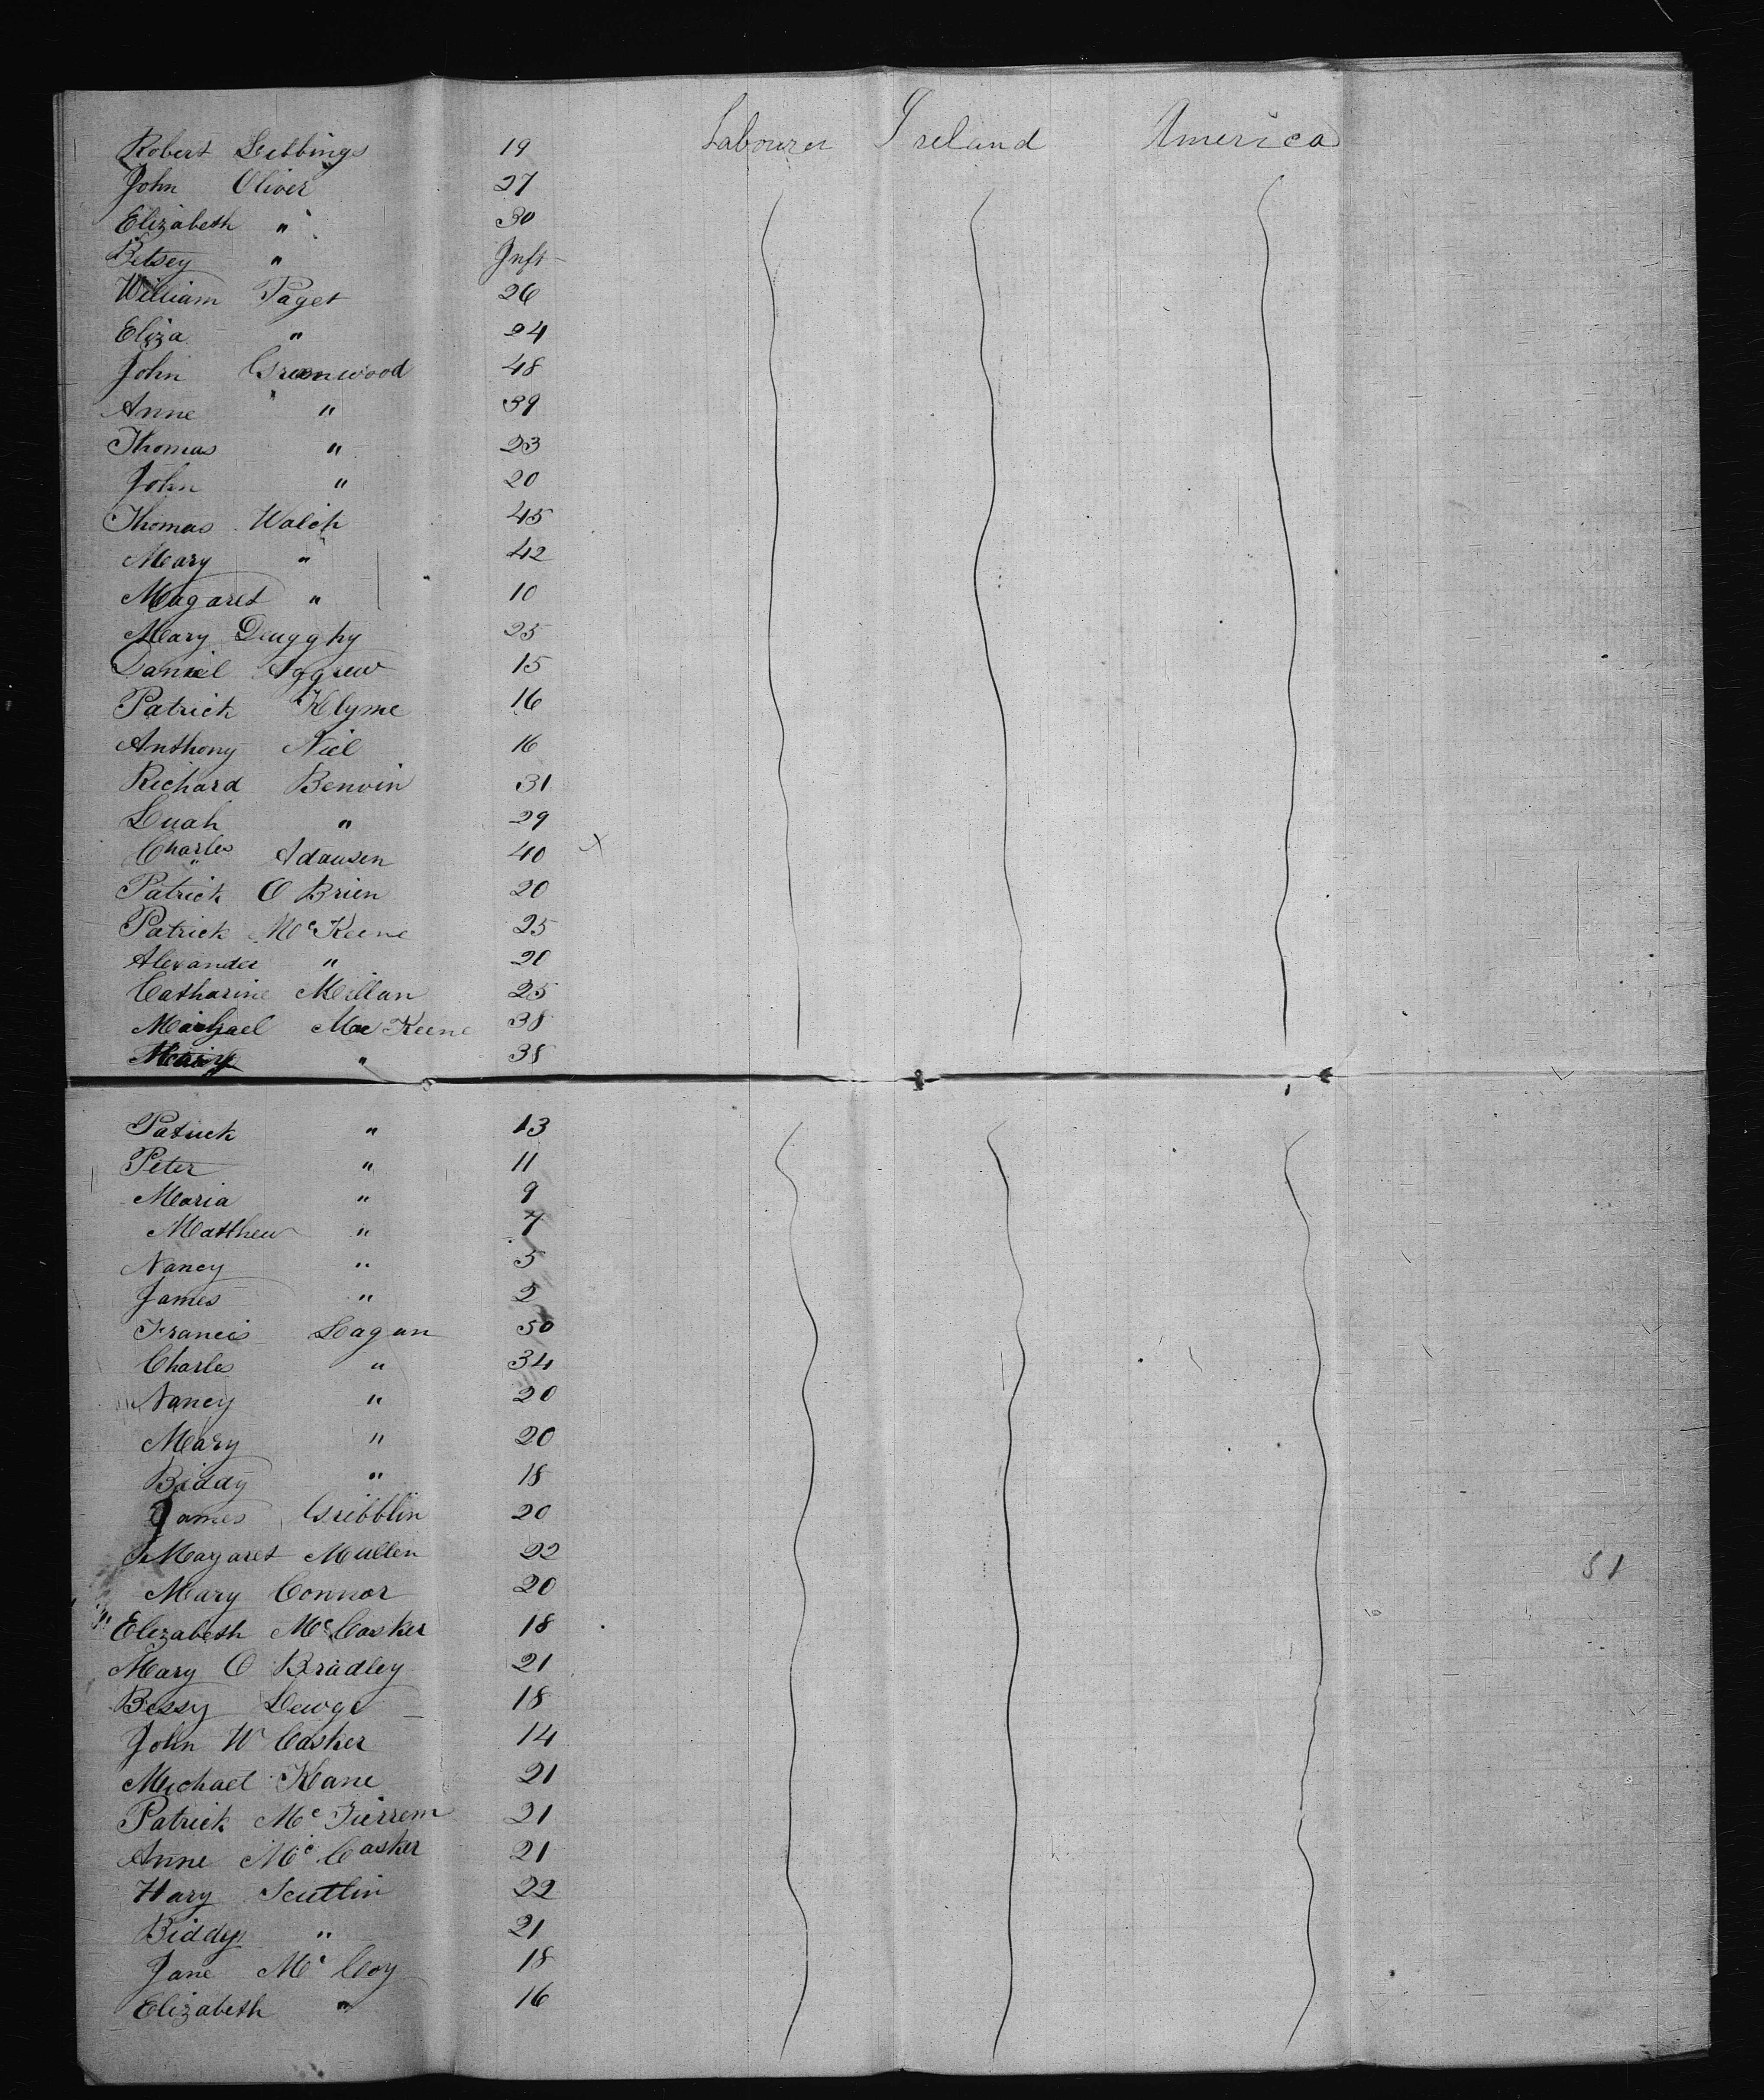 Robert Stibbings 19 Labourer Ireland America
John Oliver 27
Elizabeth " 30
Betsey " Inft
William Paget 26
Eliza " 24
John Greenwood 48
Anne " 39
Thomas " 23
John " 20
Thomas Walch 45
Mary " 42
Magaret " 10
Mary Daugghy 25
Daniel Aggrew 15
Patrick Klyme 16
Anthony Niel 16
Richard Benvin 31
Luah " 29
Charles " Adausen 40 x
Patrick O Brien 20
Patrick Mc Keene 25
Alexander " 20
Catharine Millan 25
Michael Mc Keene 38
Mary " 38
Patrick " 13
Peter " 11
Maria " 9
Matthew " 7
Nancy " 5
James " 2
Francis Lagan 50
Charles " 34
Nancy " 20
Mary " 20
Biddy " 18
James Gribblin 20
Magaret Mullen 22
Mary Connor 20
Elizabeth Mc Casker 18
Mary O Bradley 21
Bessy 18
John Mc Casker 14
Michael Kane 21
Patrick Mc 21
Anne Mc Casker 21
Hary Scutlin 22
Biddy " 21
Jane Mc Coy 18
Elizabeth " 16
51